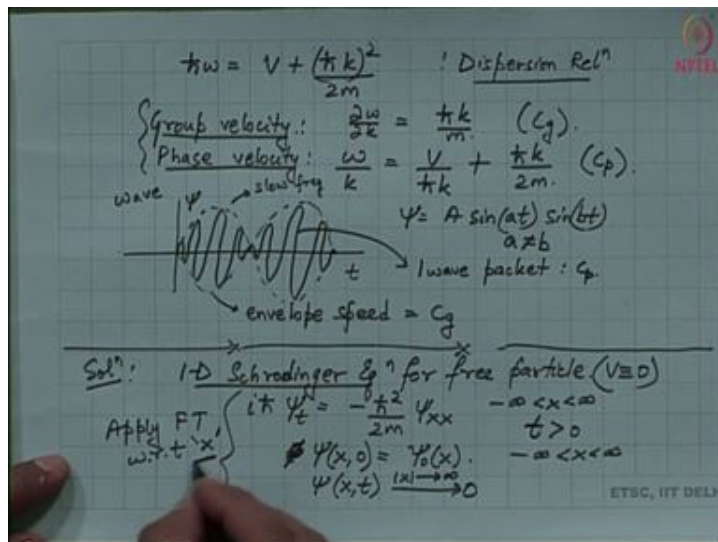 ħω = V + (ħk)²/2m ! Dispersion Relⁿ
NPTEL
Group velocity: ∂ω/∂k = ħk/m. (Cg).
Phase velocity: ω/k = V/ħk + ħk/2m. (Cp).
wave ψ slow freq
ψ = A sin(at) sin(bt)
a≠b
t
1 wave packet : Cp.
envelope speed = Cg
Solⁿ: 1-D Schrodinger Eqⁿ for free particle (V≡0)
iħ ψt = -ħ²/2m ψxx -∞<x<∞
Apply FT t>0
w.r.t 'x'
ψ(x,0) = ψ0(x). -∞<x<∞
ψ(x,t) |x|→∞ → 0
ETSC, IIT DELH